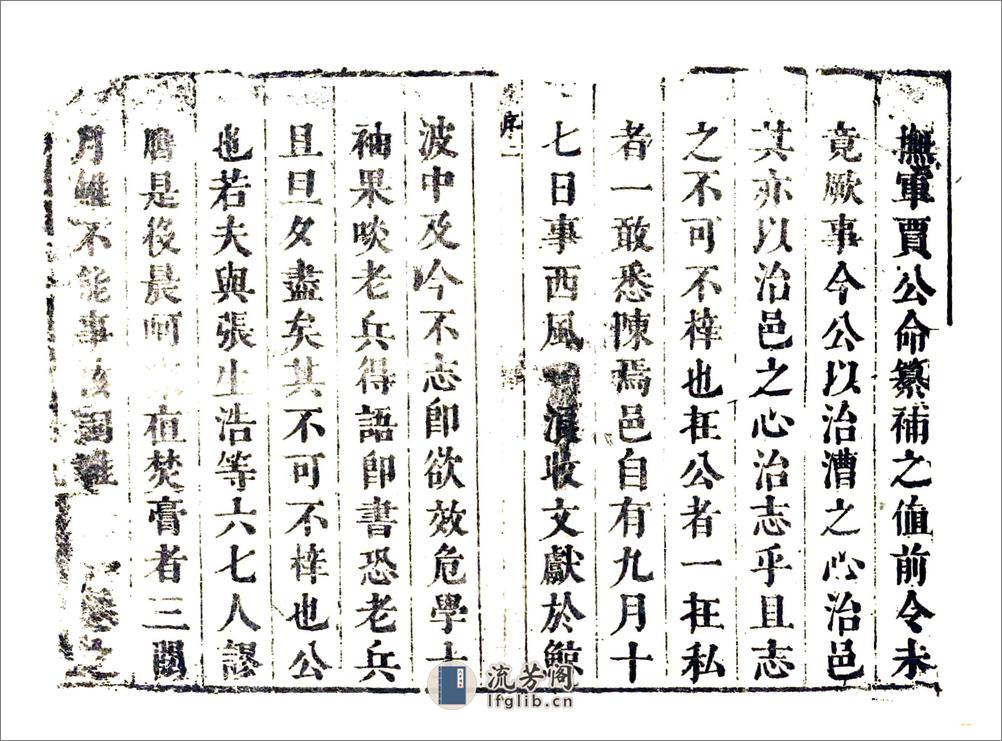 撫軍賈公命纂補之值前令未
竟厥事今公以治漕之心治邑
其亦以治邑之心治志乎且志
之不可不梓也在公者一在私
者一敢悉陳焉邑自有九月十
七日事西風 浪收文獻於鯨
序 二
波中及今不志卽欲效危學士
袖果啖老兵得語卽書恐老兵
且旦夕盡矣其不可不梓也公
也若夫與張生浩等六七人謬
膺是役晨 夜焚膏者三閱
月雖不能事 詞
流芳阁
lfglib.cn